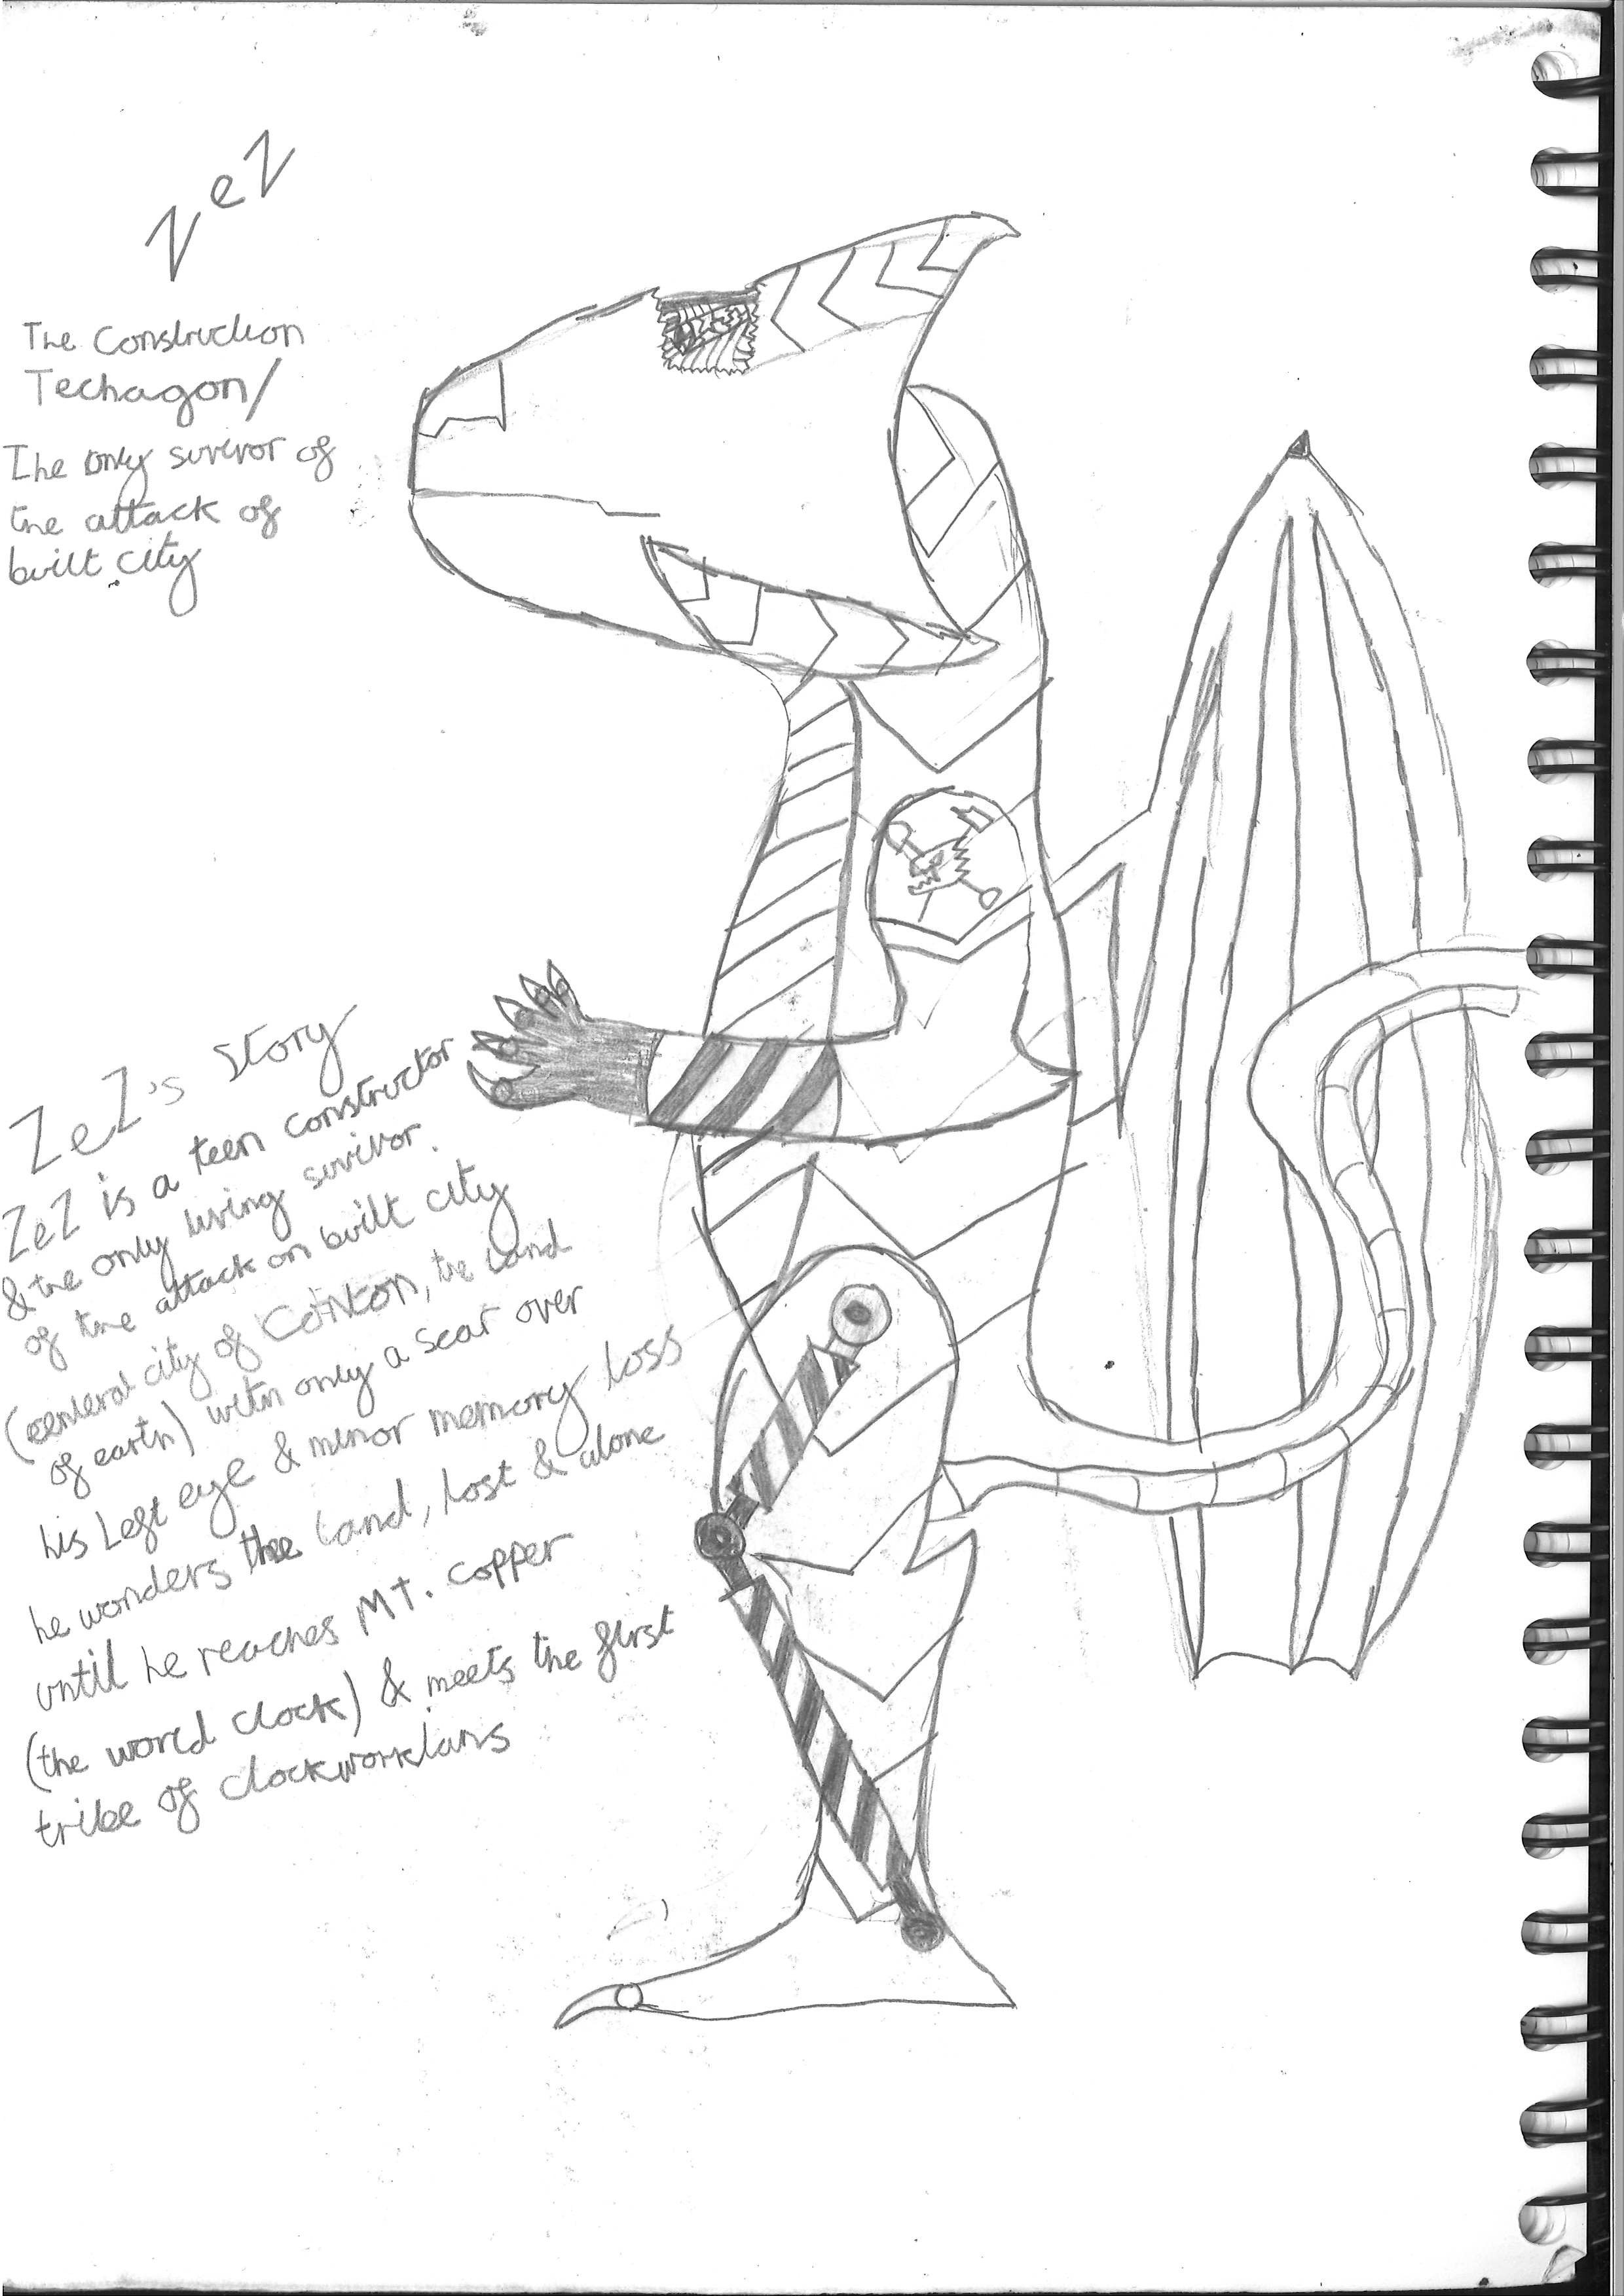 ZeZ
The Construction
Techagon/
The only surivor of
the attack of
built city
ZeZ's Story
ZeZ is a teen constructor
& the only living surivor
of the attack on built city
(centeral city of Conton, the Land
of earth) with only a scar over
his Left eye & minor memory Loss
he wonders the Land, Lost & alone
until he reaches MT. copper
(the world clock) & meets the first
tribe of clockworklans